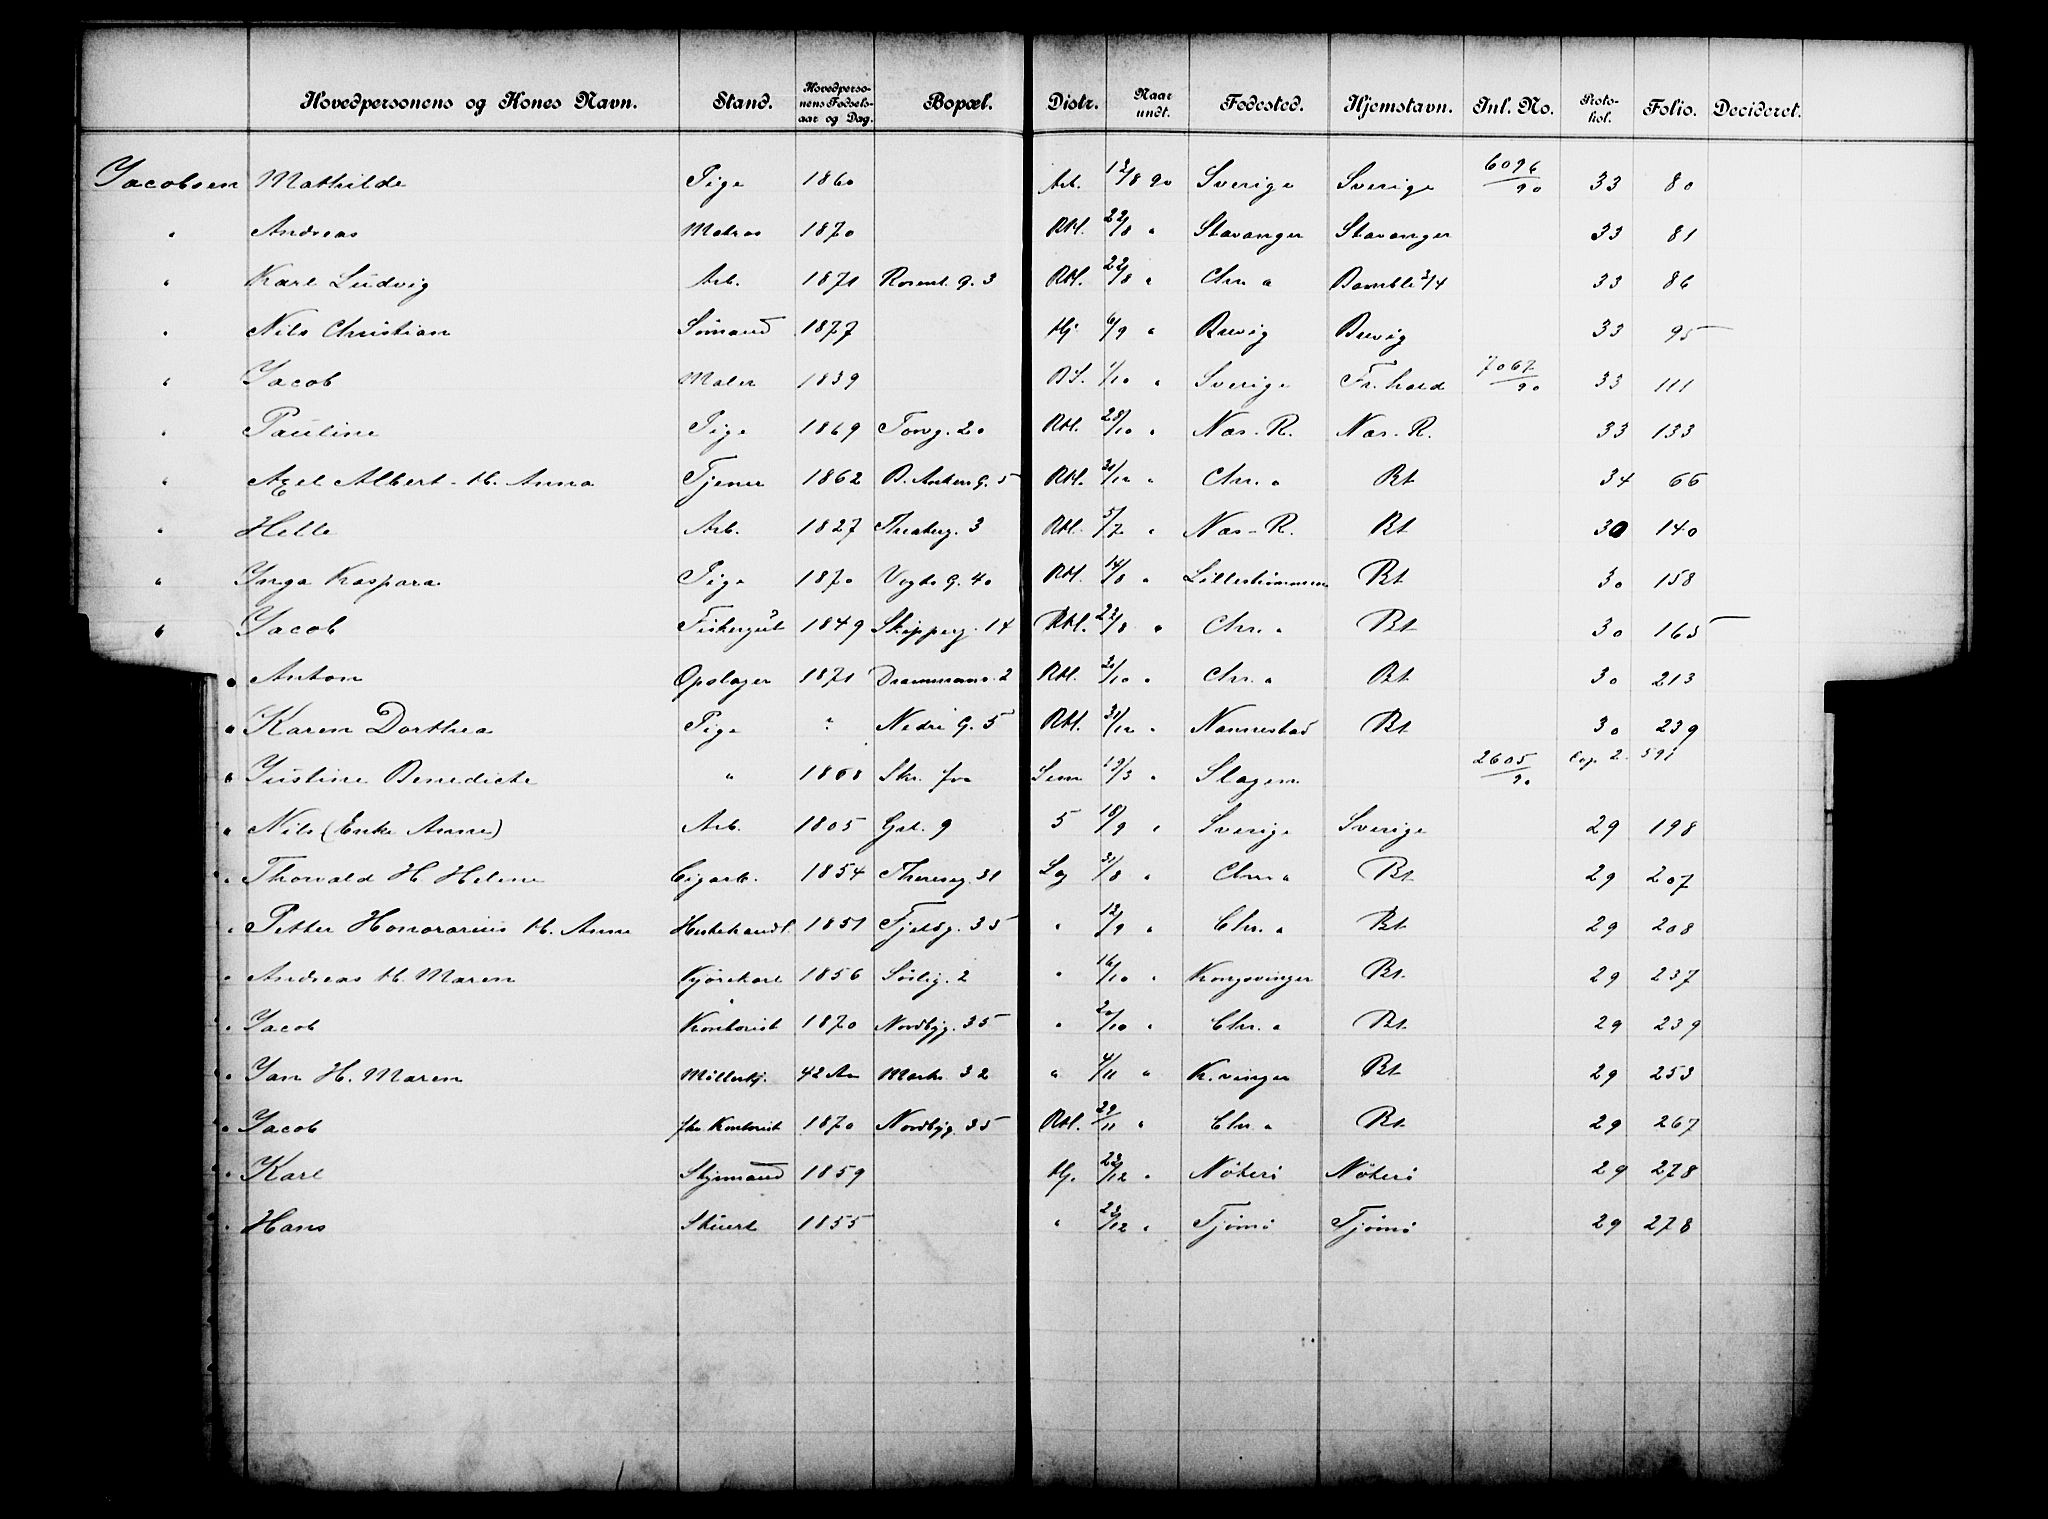 Hovedpersonens og Kones Navn. Stand. Hovedperso-nens Fødsels-aar og Dag. Bopæl. Distr. Naar undt. Fødested. Hjemstavn. Jnl. No. Proto-kol. Folio. Decideret.
Jacobsen Mathilde Pige 1860 Arb. 12/8 90 Sverige Sverige 6096/90 33 80
" Andreas Matros 1870 Rbl. 22/8 " Stavanger Stavanger 33 81
" Karl Ludvig Arb. 1871 Rosenk. g. 3 Rbl. 22/8 " Chr. a Bamble 3/4 33 86
" Nils Christian Sømand 1877 Hj. 6/9 " Brevig Brevig 33 95
" Jacob Maler 1839 1/10 " Sverige Fr.hald 7067/90 33 111
" Pauline Pige 1869 Torvg. 20 Rbl. 28/10 " Næs-R. Næs-R. 33 133
" Axel Albert H. Anna Tjener 1862 B. Ankers G. 5 Rbl. 31/12 " Chr. a Bt 34 66
" Helle Arb. 1827 Theaterg. 3 Rbl. 5/7 " Næs-R. Bt 30 140
" Inga Kaspara Pige 1870 Vogts G. 40 Rbl. 14/8 " Lillestrømmen Bt 30 158
" Jacob Fiskergut 1849 Skipperg. 14 Rbl. 22/8 " Chr. a Bt 30 165
" Anton Opslager 1871 Drammensv. 2 Rbl. 31/10 " Chr. a Bt 30 213
" Karen Dorthea Pige " Nedre G. 5 Rbl. 31/12 " Nannestad Bt 30 239
" Justine Benedicte " 1868 Skr. fra Sem 19/3 " Slagen 2605/90 Cop. 2. 591
" Nils (Enke Anne) Arb. 1805 9 5 18/9 " Sverige Sverige 29 198
" Thorvald H. Helene Cigarb. 1854 Thereseg. 31 Lag 31/8 " Chr. a Bt 29 207
" Petter Honorarius H. Anne Hestehandl. 1851 Tjelsg. 35 " 12/9 " Chr. a Bt 29 208
" Andreas H. Maren Kjørekarl 1856 Søilig. 2 " 16/10 " Kongsvinger Bt 29 237
" Jacob Kontorist 1870 Nordbyg. 35 " 20/10 " Chr. a Bt. 29 239
" Jan H. Maren Møllerkj. 42 Aar Mark. 32 " 4/11 " K.vinger Bt 29 253
" Jacob fhv. Kontorist 1870 Nordbyg. 35 Rbl. 29/11 " Chr. a Bt 29 267
" Karl Styrmand 1859 Hj. 23/12 " Nøterø Nøterø 29 278
" Hans Stuert 1855 " 23/12 " Tjømø Tjømø 29 278